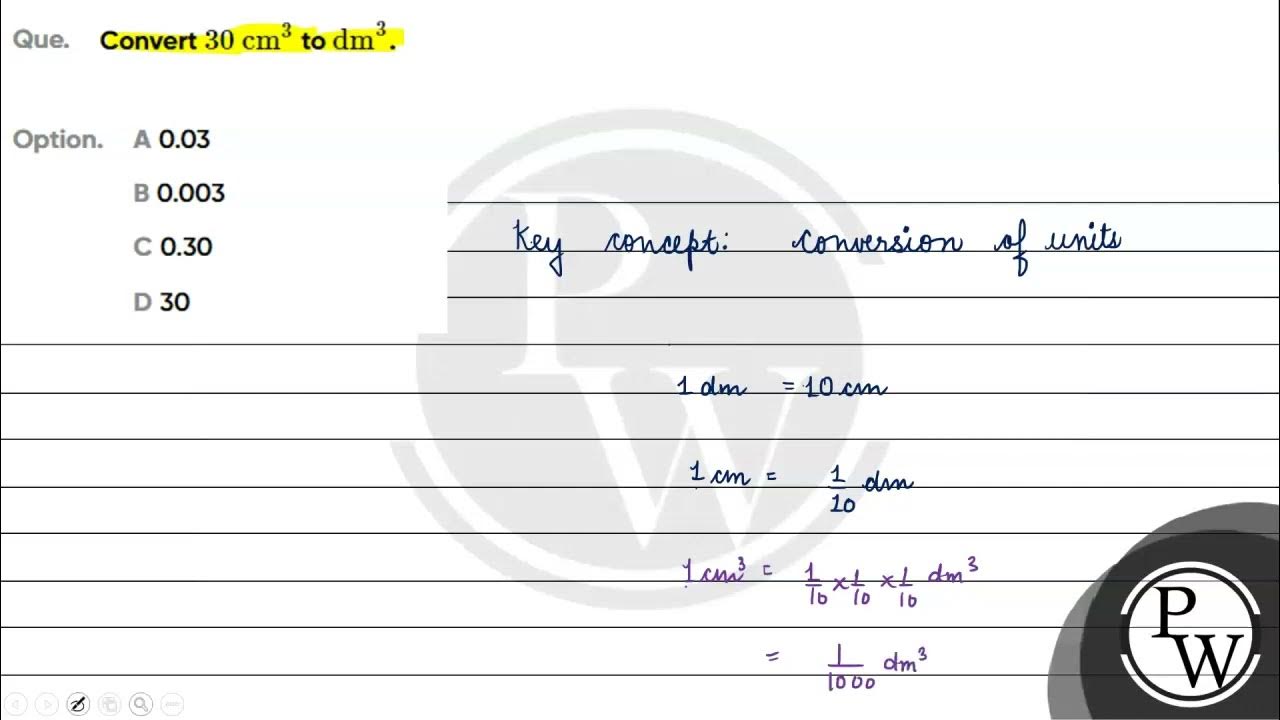 Que. Convert 30 cm³ to dm³.
Option. A 0.03
B 0.003
C 0.30
D 30
Key concept: conversion of units
1 dm = 10 cm
1 cm = 1/10 dm
1 cm³ = 1/10 × 1/10 × 1/10 dm³
= 1/1000 dm³
PW
PW